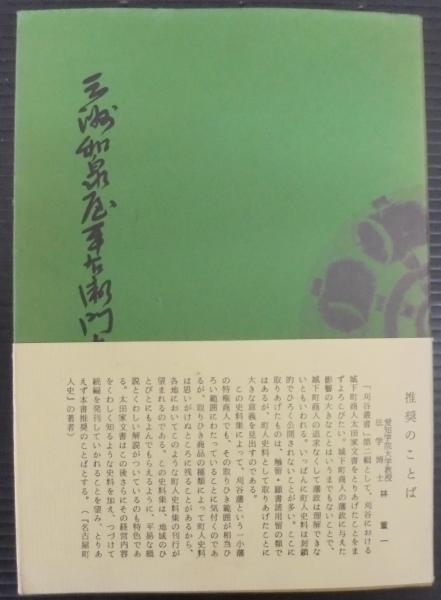 三州和泉屋平右衛門
推奨のことば
愛知学院大学教授
法学博士 林董一
「刈谷叢書」第二輯として、刈谷における
城下町商人太田家文書をとりあげたことをま
ずよろこびたい。城下町商人の藩政に与えた
影響の大きなことはいうまでもないことで、
城下町商人の追求なくして藩政は理解できな
いともいわれる。いっぱんに町人史料は封鎖
的でひろく公開されないことが多い。ここに
取りあげたものは、触留・願書諸用留の類で
はあるが、町人史料として取りあげたことに
大きな意義を見出すのである。
この史料集によって、刈谷藩という一小藩
の特権商人でも、その取りひき範囲が相当ひ
ろい範囲にわたっていることに気付くのであ
るが、取りひき商品の種類によって町人史料
は思いがけぬところに残ることがあるから、
各地においてこのような町人史料集の刊行が
望まれるのである。この史料集は、地域のひ
とびとにもよんでもらえるように、平易な概
説とくわしい解説がついているのも特色であ
る。太田家文書はこの後さらにその経営内容
をくわしく知るような史料を加え、つづけて
続編を発刊していかれることを望み、とりあ
えず本書推奨のことばとする。(『名古屋町
人史』の著者)